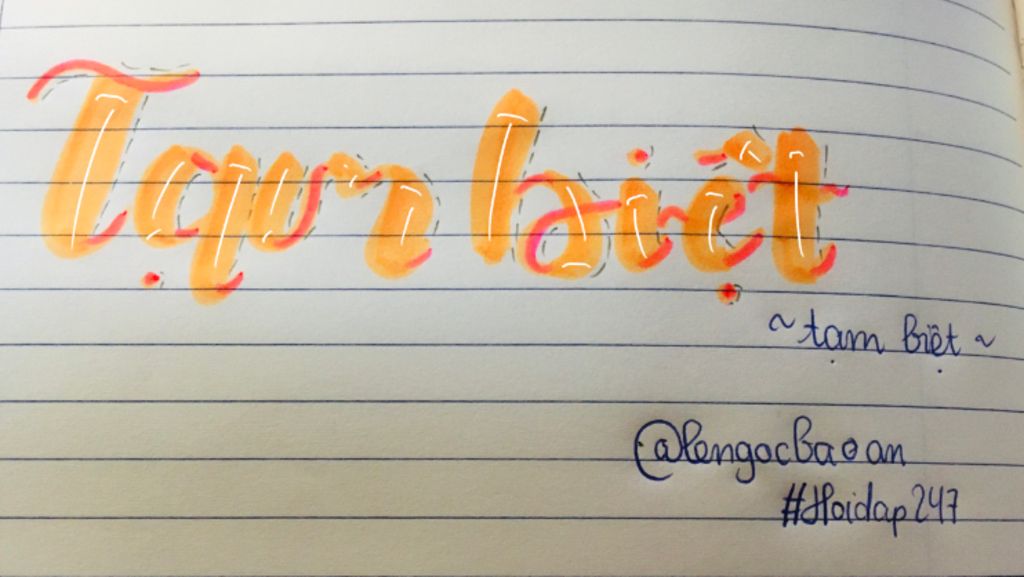 Tạm biệt
~ tạm biệt ~
@lengocbaoan
#Hoidap247